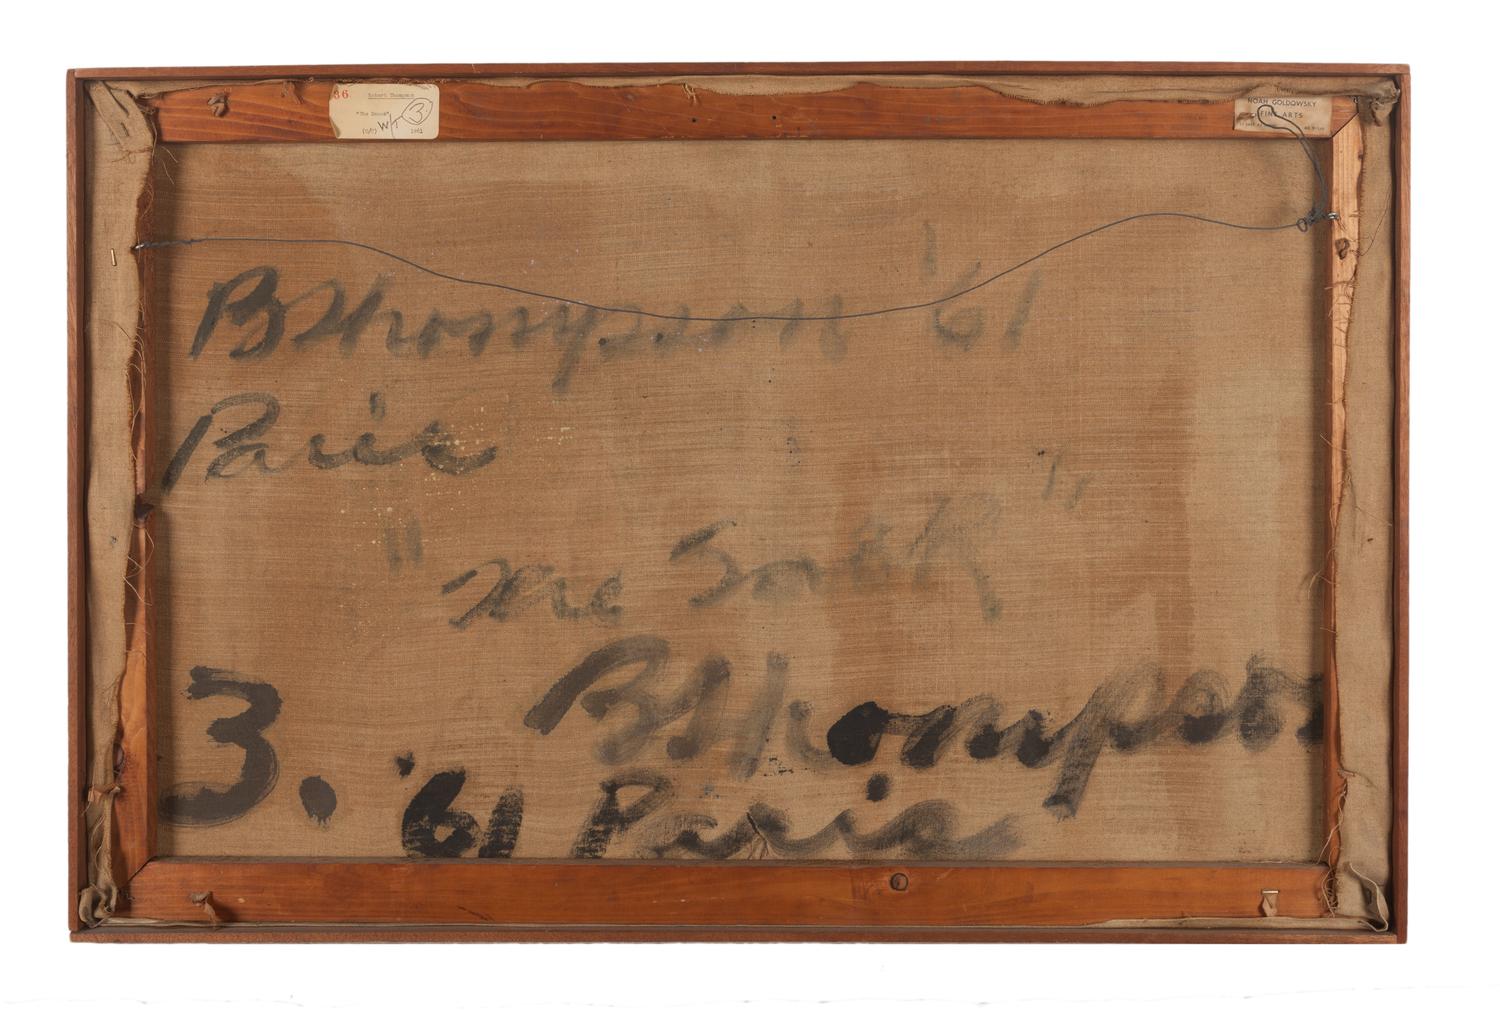 36 Robert Thompson
3.
W/T
(O/C) 1961
NOAH GOLDOWSKY
FINE ARTS
BThompson '61
Paris
"The
"
BThompson
3. '61 Paris